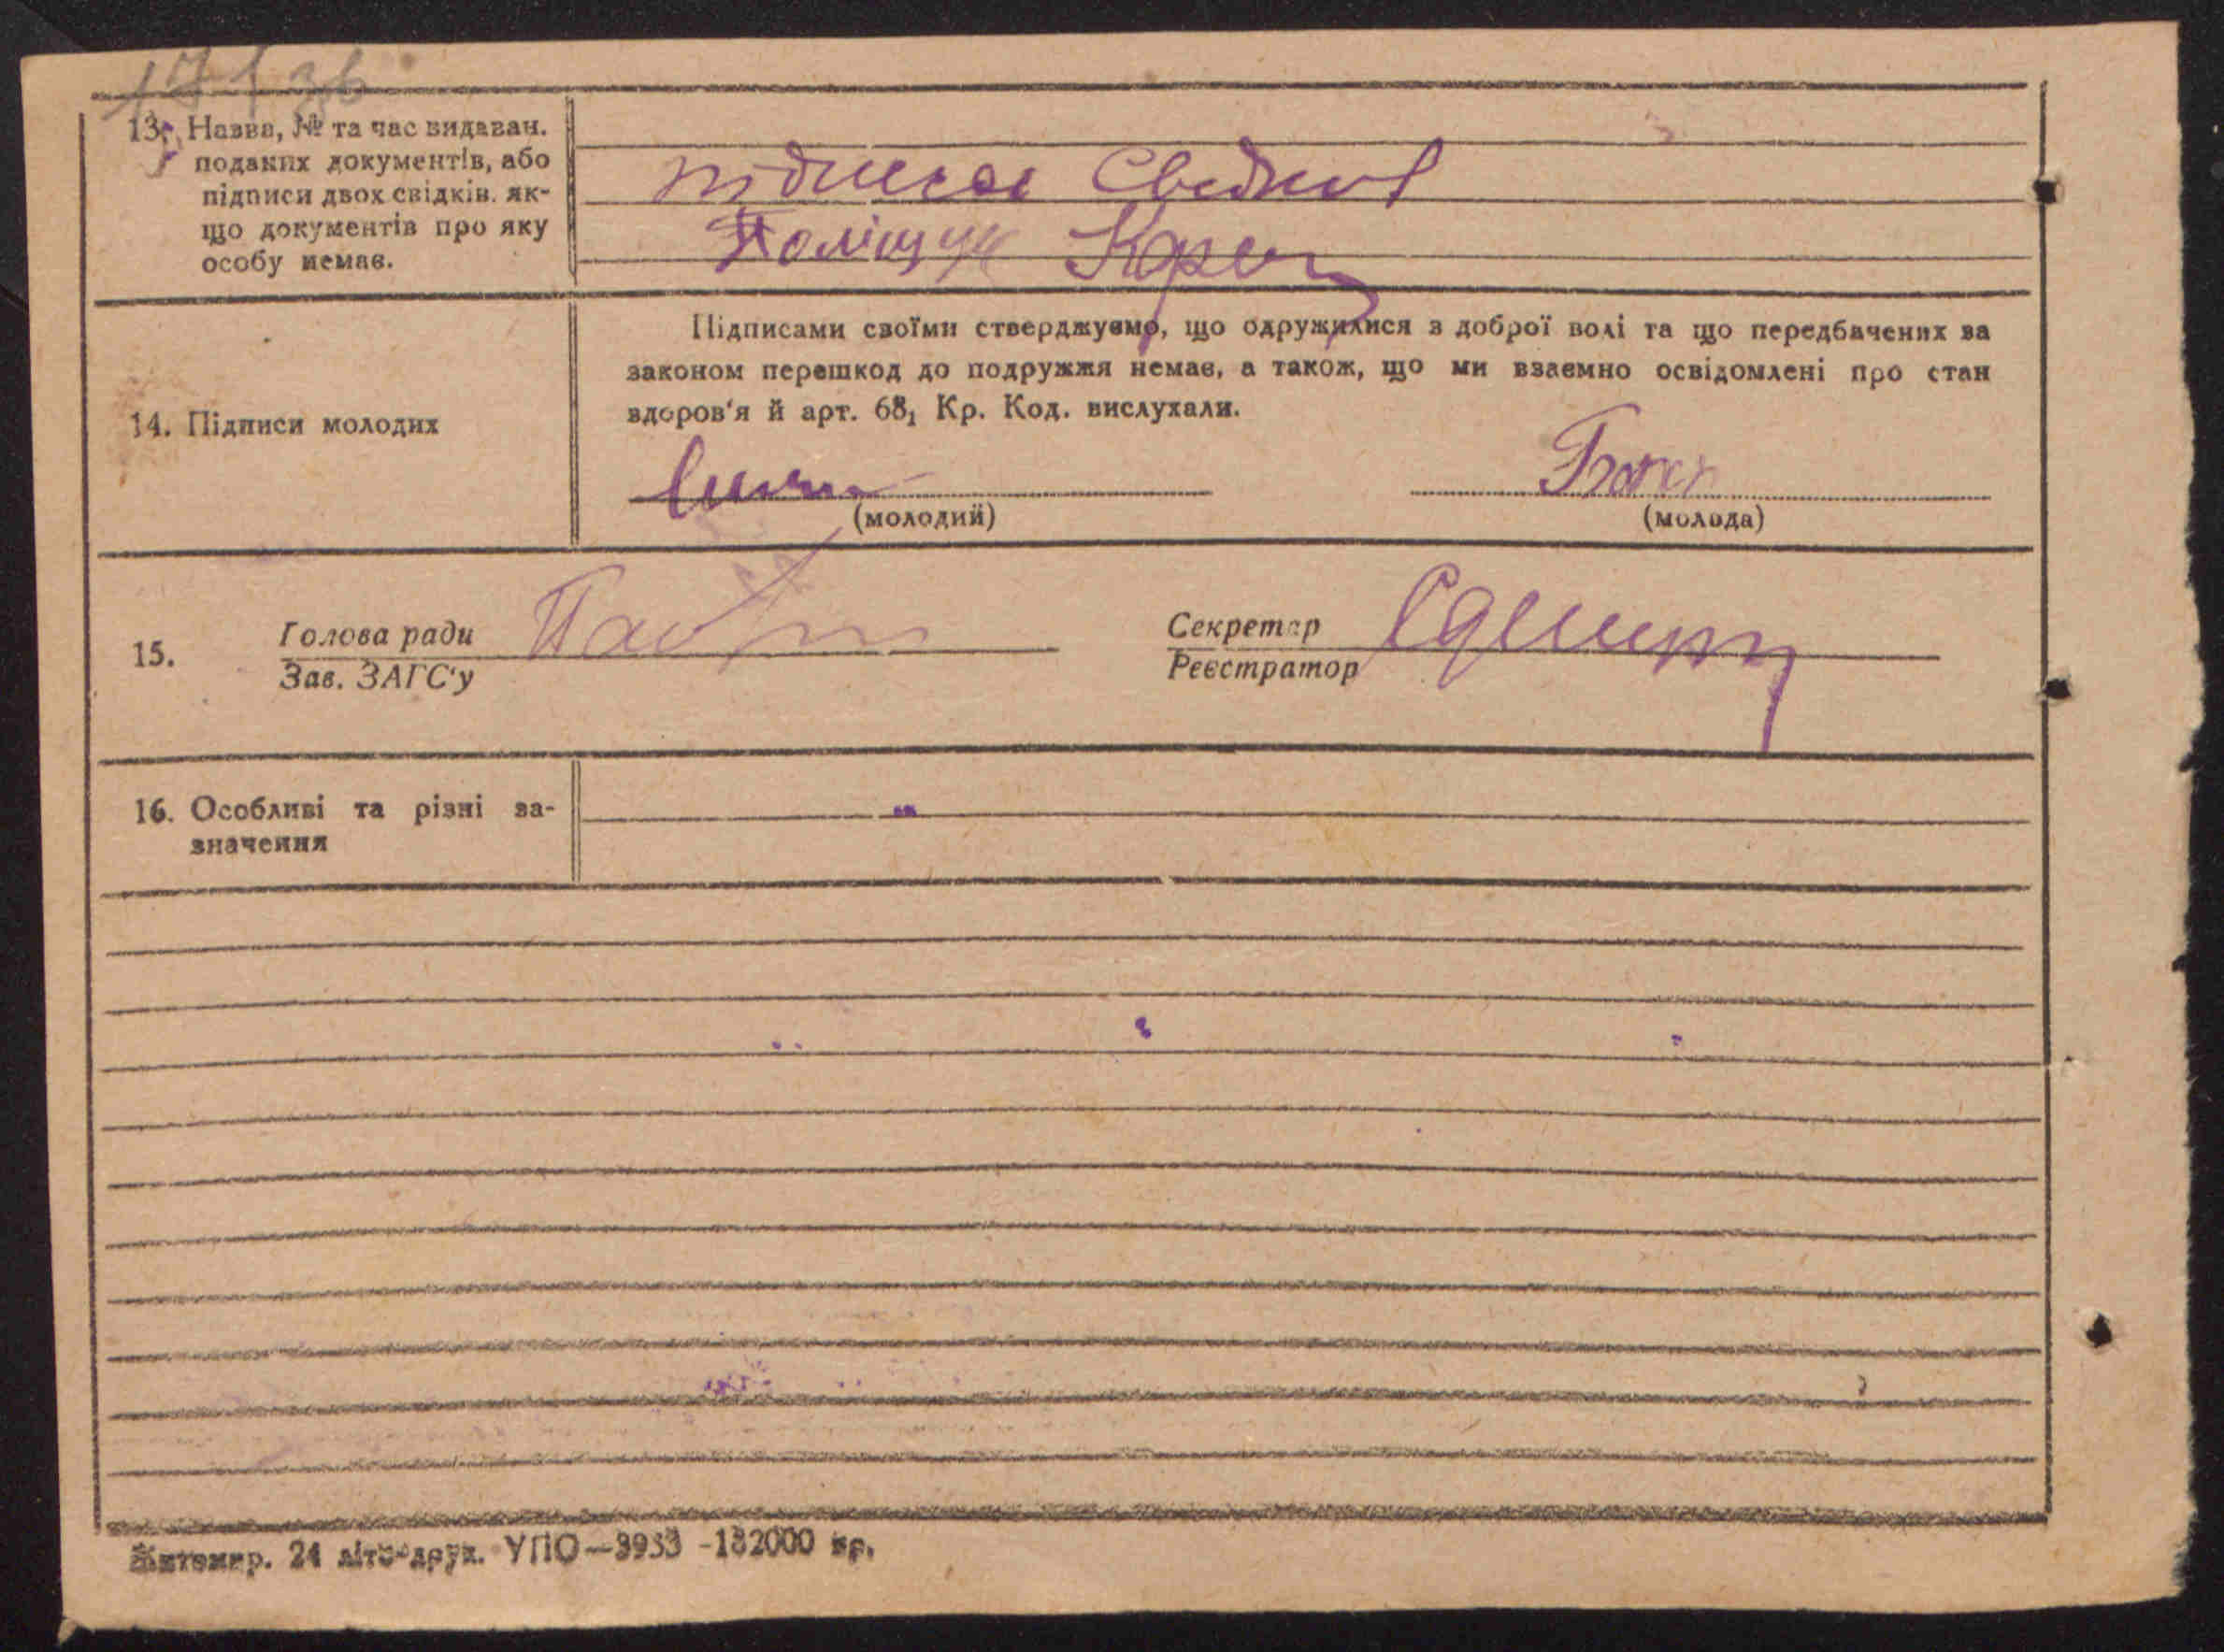 13. Назва, № та час видаван.
поданих документів, або
підписи двох свідків. як-
що документів про яку
особу немає.
підписи Свідков
Поліщук
Підписами своїми стверджуємо, що одружилися з доброї волі та що передбачених за
законом перешкод до подружжя немає, а також, що ми взаємно освідомлені про стан
здоров'я й арт. 68₁ Кр. Код. вислухали.
14. Підписи молодих
(молодий) (молода)
15. Голова ради
Зав. ЗАГС'у
Секретар
Реєстратор
16. Особливі та різні за-
значення
Житомир. 24 літо-друк. УПО—3933 -132000 пр.